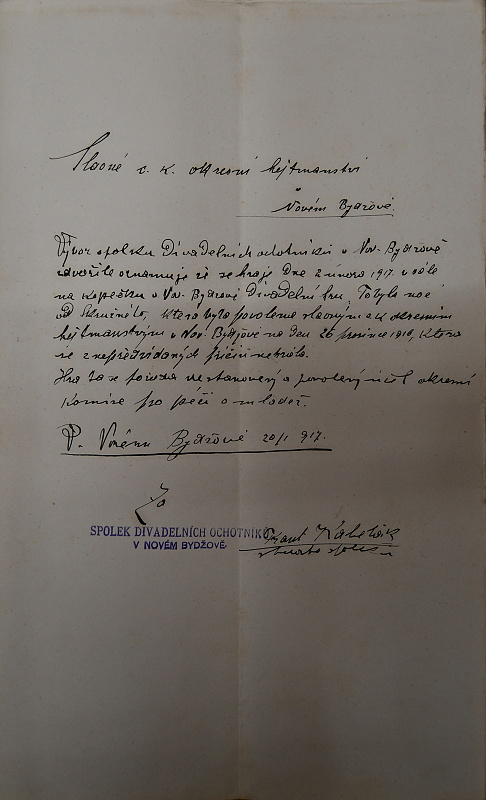 Slavné c. k. okresní hejtmanství
v
Novém Bydžově.
Výbor spolku Divadelních ochotníků v Nov. Bydžově
dovoluje oznamuje že sehraje dne 2 února 1917. v sále
na Kopečku v Nov. Bydžově Divadelní hru,
od, která byla povolena slavným c k okresním
hejtmanstvím v Nov. Bydžově na den 26 prosince 1916, která
se z nepředvídaných příčin nehrála.
Hra ta se pořádá ve stanovený a povolený účel okresní
Komise pro péči o mládež.
V Novém Bydžově 20/1 917.
Za
SPOLEK DIVADELNÍCH OCHOTNÍKŮ
V NOVÉM BYDŽOVĚ
Frant